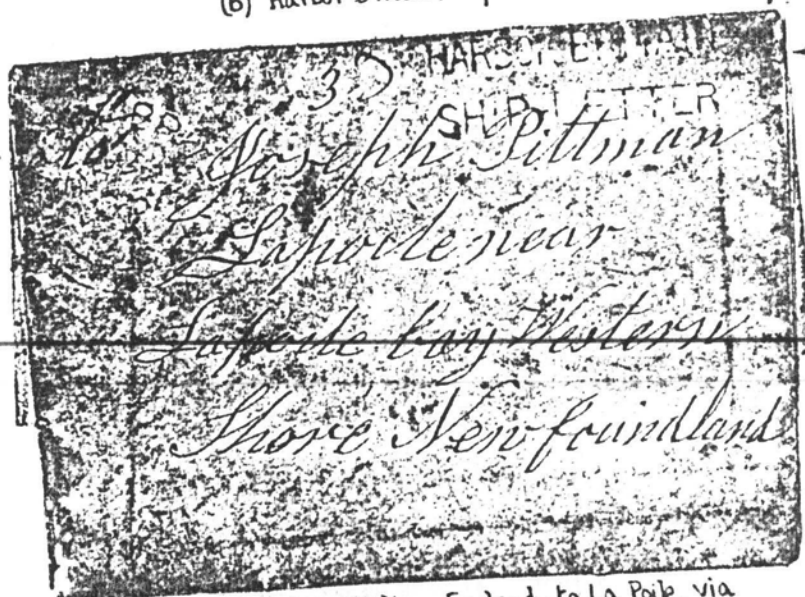 (B) Harbor
3
HARBOR BRITAIN
SHIP LETTER
Joseph Pittman
Lapoile near
Lapoile bay Western
Shore Newfoundland
England to La Poile via